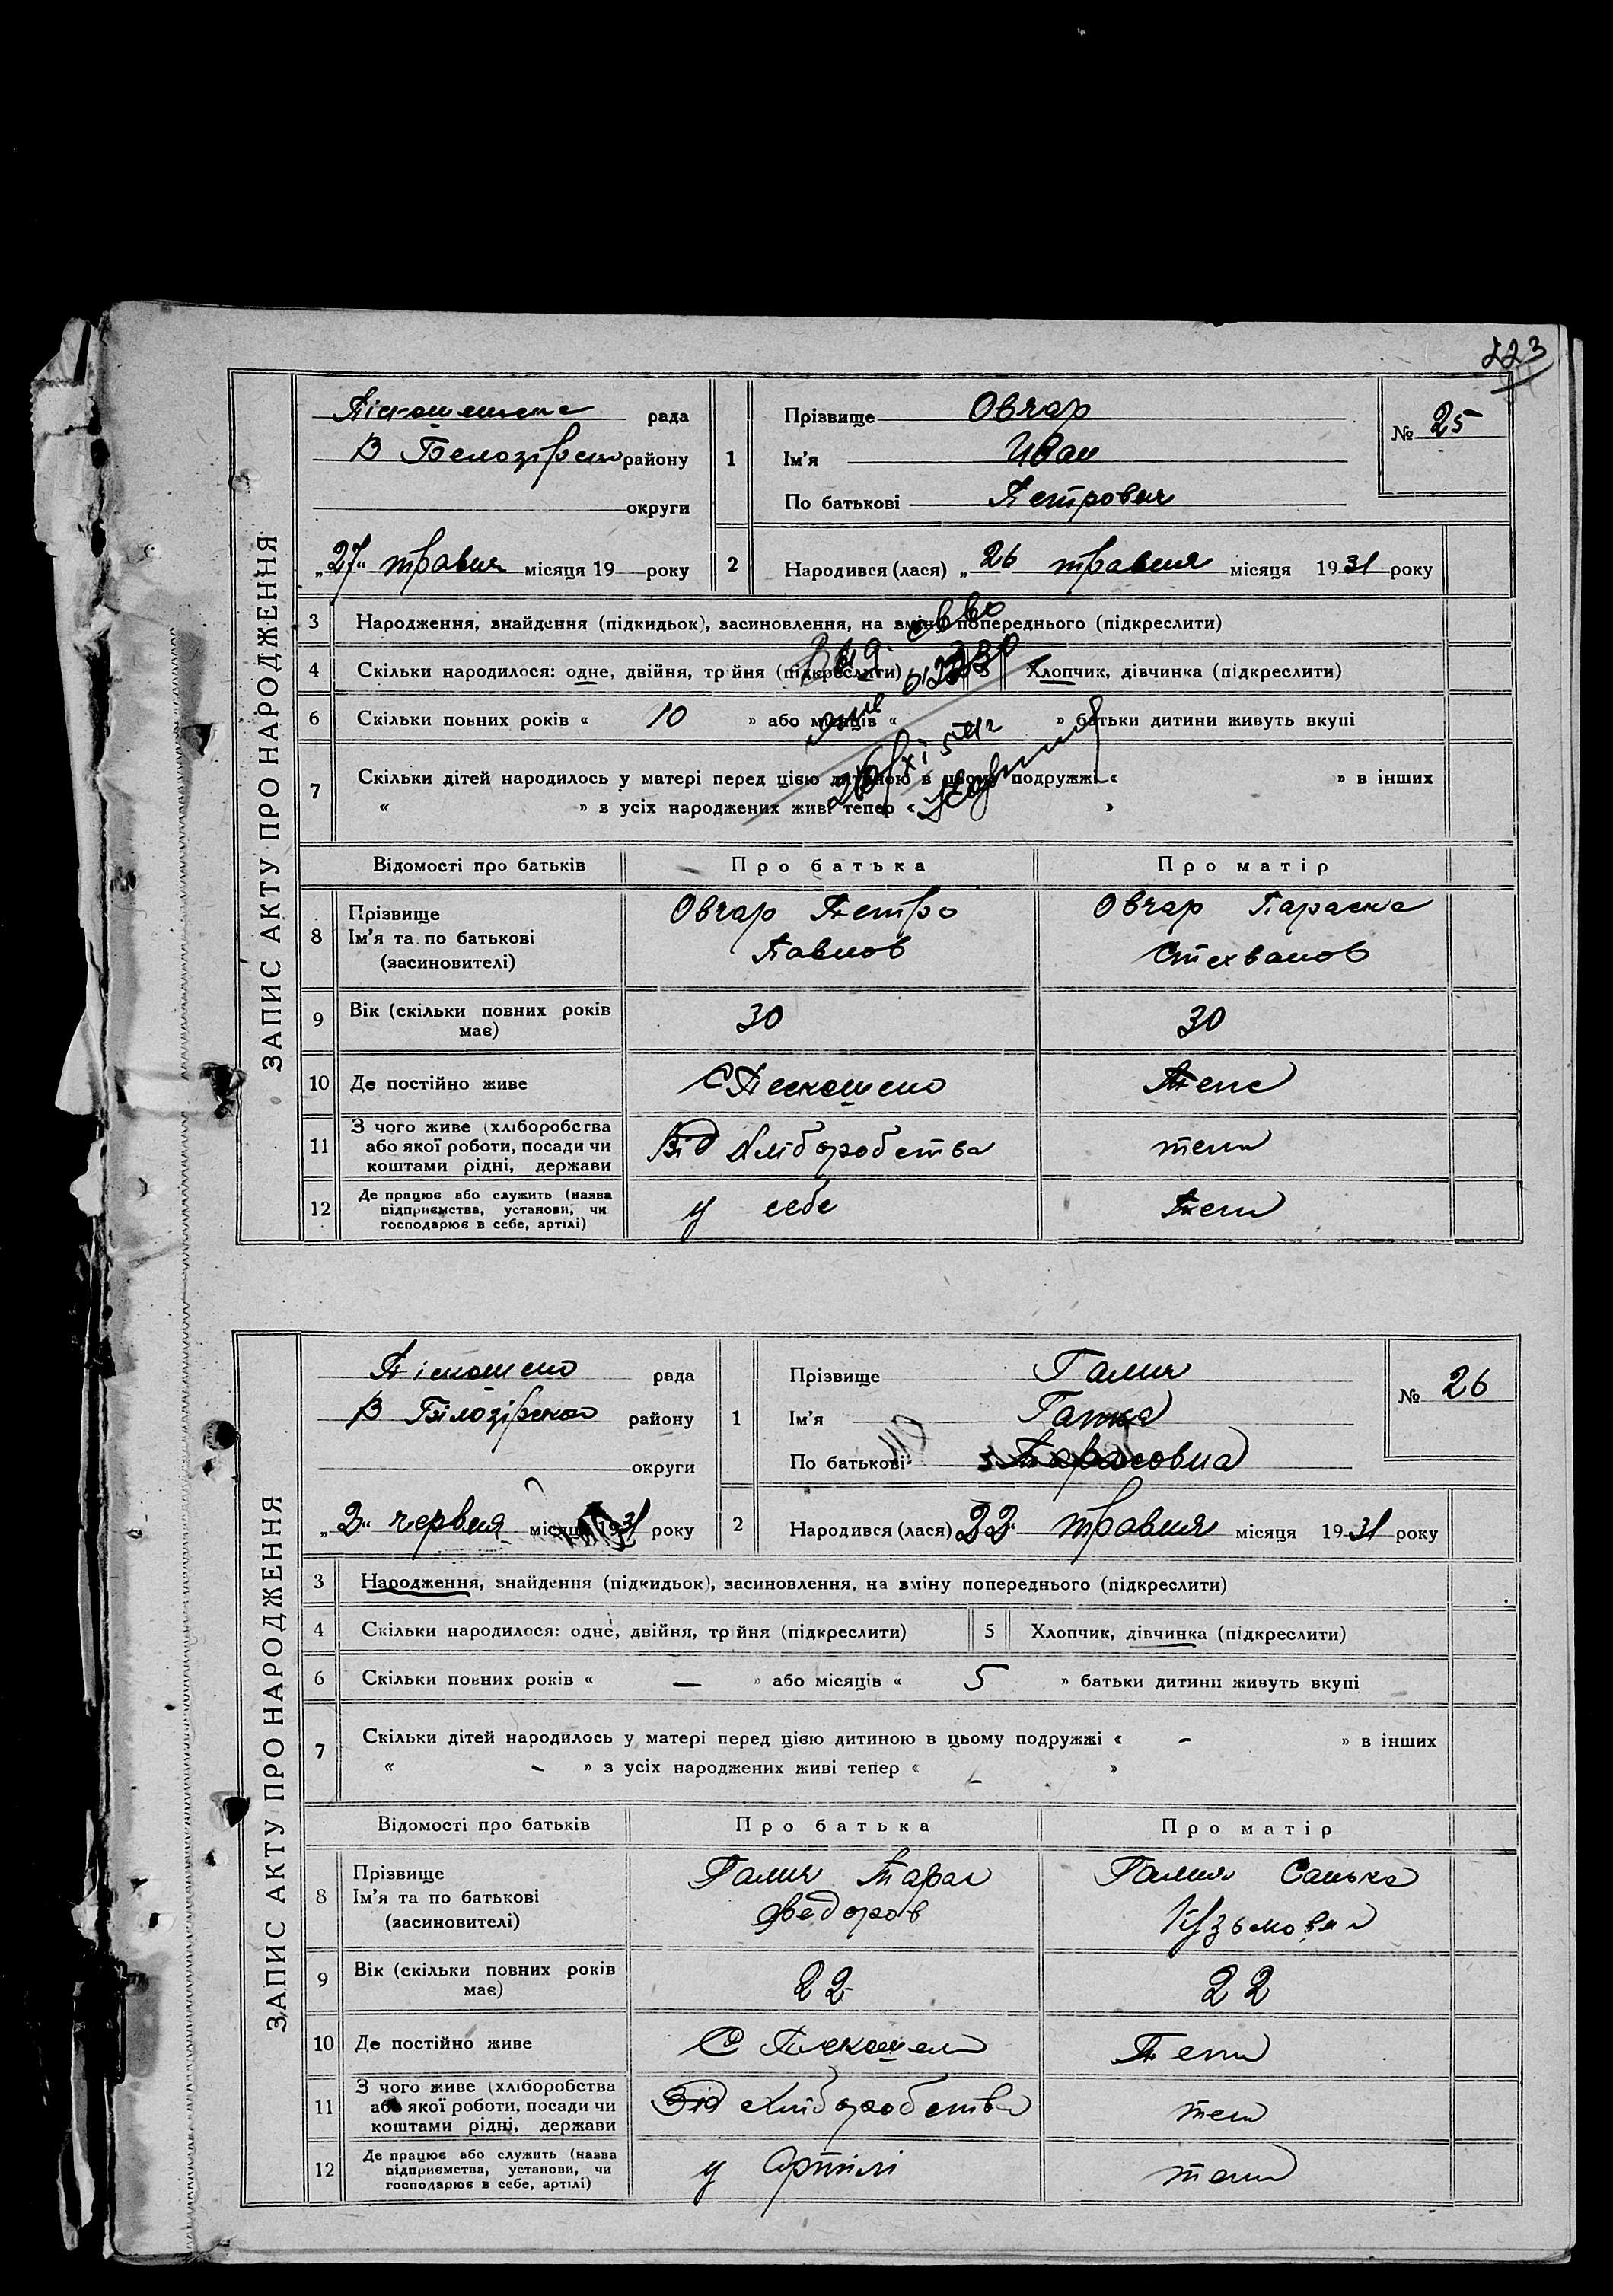 223
ЗАПИС АКТУ ПРО НАРОДЖЕННЯ
рада
В Белозірсько району
округи
„27“ травня місяця 19 року
1
Прізвище Овчар
Ім'я Иван
По батькові Петрович
№ 25
2
Народився (лася) „26 травня місяця 1931 року
3 Народження, знайдення (підкидьок), засиновлення, на зміну попереднього (підкреслити)
4 Скільки народилося: одне, двійня, трійня (підкреслити) 5 Хлопчик, дівчинка (підкреслити)
6 Скільки повних років « 10 » або місяців « » батьки дитини живуть вкупі
7 Скільки дітей народилось у матері перед цією дитиною в цьому подружжі « » в інших
« » з усіх народжених живі тепер « »
Відомості про батьків Про батька Про матір
8 Прізвище
Ім'я та по батькові
(засиновителі)
Овчар Петро
Павлов
Овчар Параска
Стехванов
9 Вік (скільки повних років
має)
30 30
10 Де постійно живе
11 З чого живе (хліборобства
або якої роботи, посади чи
коштами рідні, держави
Від Хліборобства
12 Де працює або служить (назва
підприємства, установи, чи
господарює в себе, артілі)
у себе
ЗАПИС АКТУ ПРО НАРОДЖЕННЯ
рада
В Білозірсько району
округи
„2“ червня місяця 1931 року
1
Прізвище Галич
Ім'я Гапка
По батькові Тарасовна
№ 26
2
Народився (лася) 22“ травня місяця 1931 року
3 Народження, знайдення (підкидьок), засиновлення, на зміну попереднього (підкреслити)
4 Скільки народилося: одне, двійня, трійня (підкреслити) 5 Хлопчик, дівчинка (підкреслити)
6 Скільки повних років « — » або місяців « 5 » батьки дитини живуть вкупі
7 Скільки дітей народилось у матері перед цією дитиною в цьому подружжі « - » в інших
« - » з усіх народжених живі тепер « - »
Відомості про батьків Про батька Про матір
8 Прізвище
Ім'я та по батькові
(засиновителі)
Галич Тарас
Федоров
Галич Санька
Кузьмовна
9 Вік (скільки повних років
має)
22 22
10 Де постійно живе
11 З чого живе (хліборобства
або якої роботи, посади чи
коштами рідні, держави
Від хліборобства
12 Де працює або служить (назва
підприємства, установи, чи
господарює в себе, артілі)
у Артілі